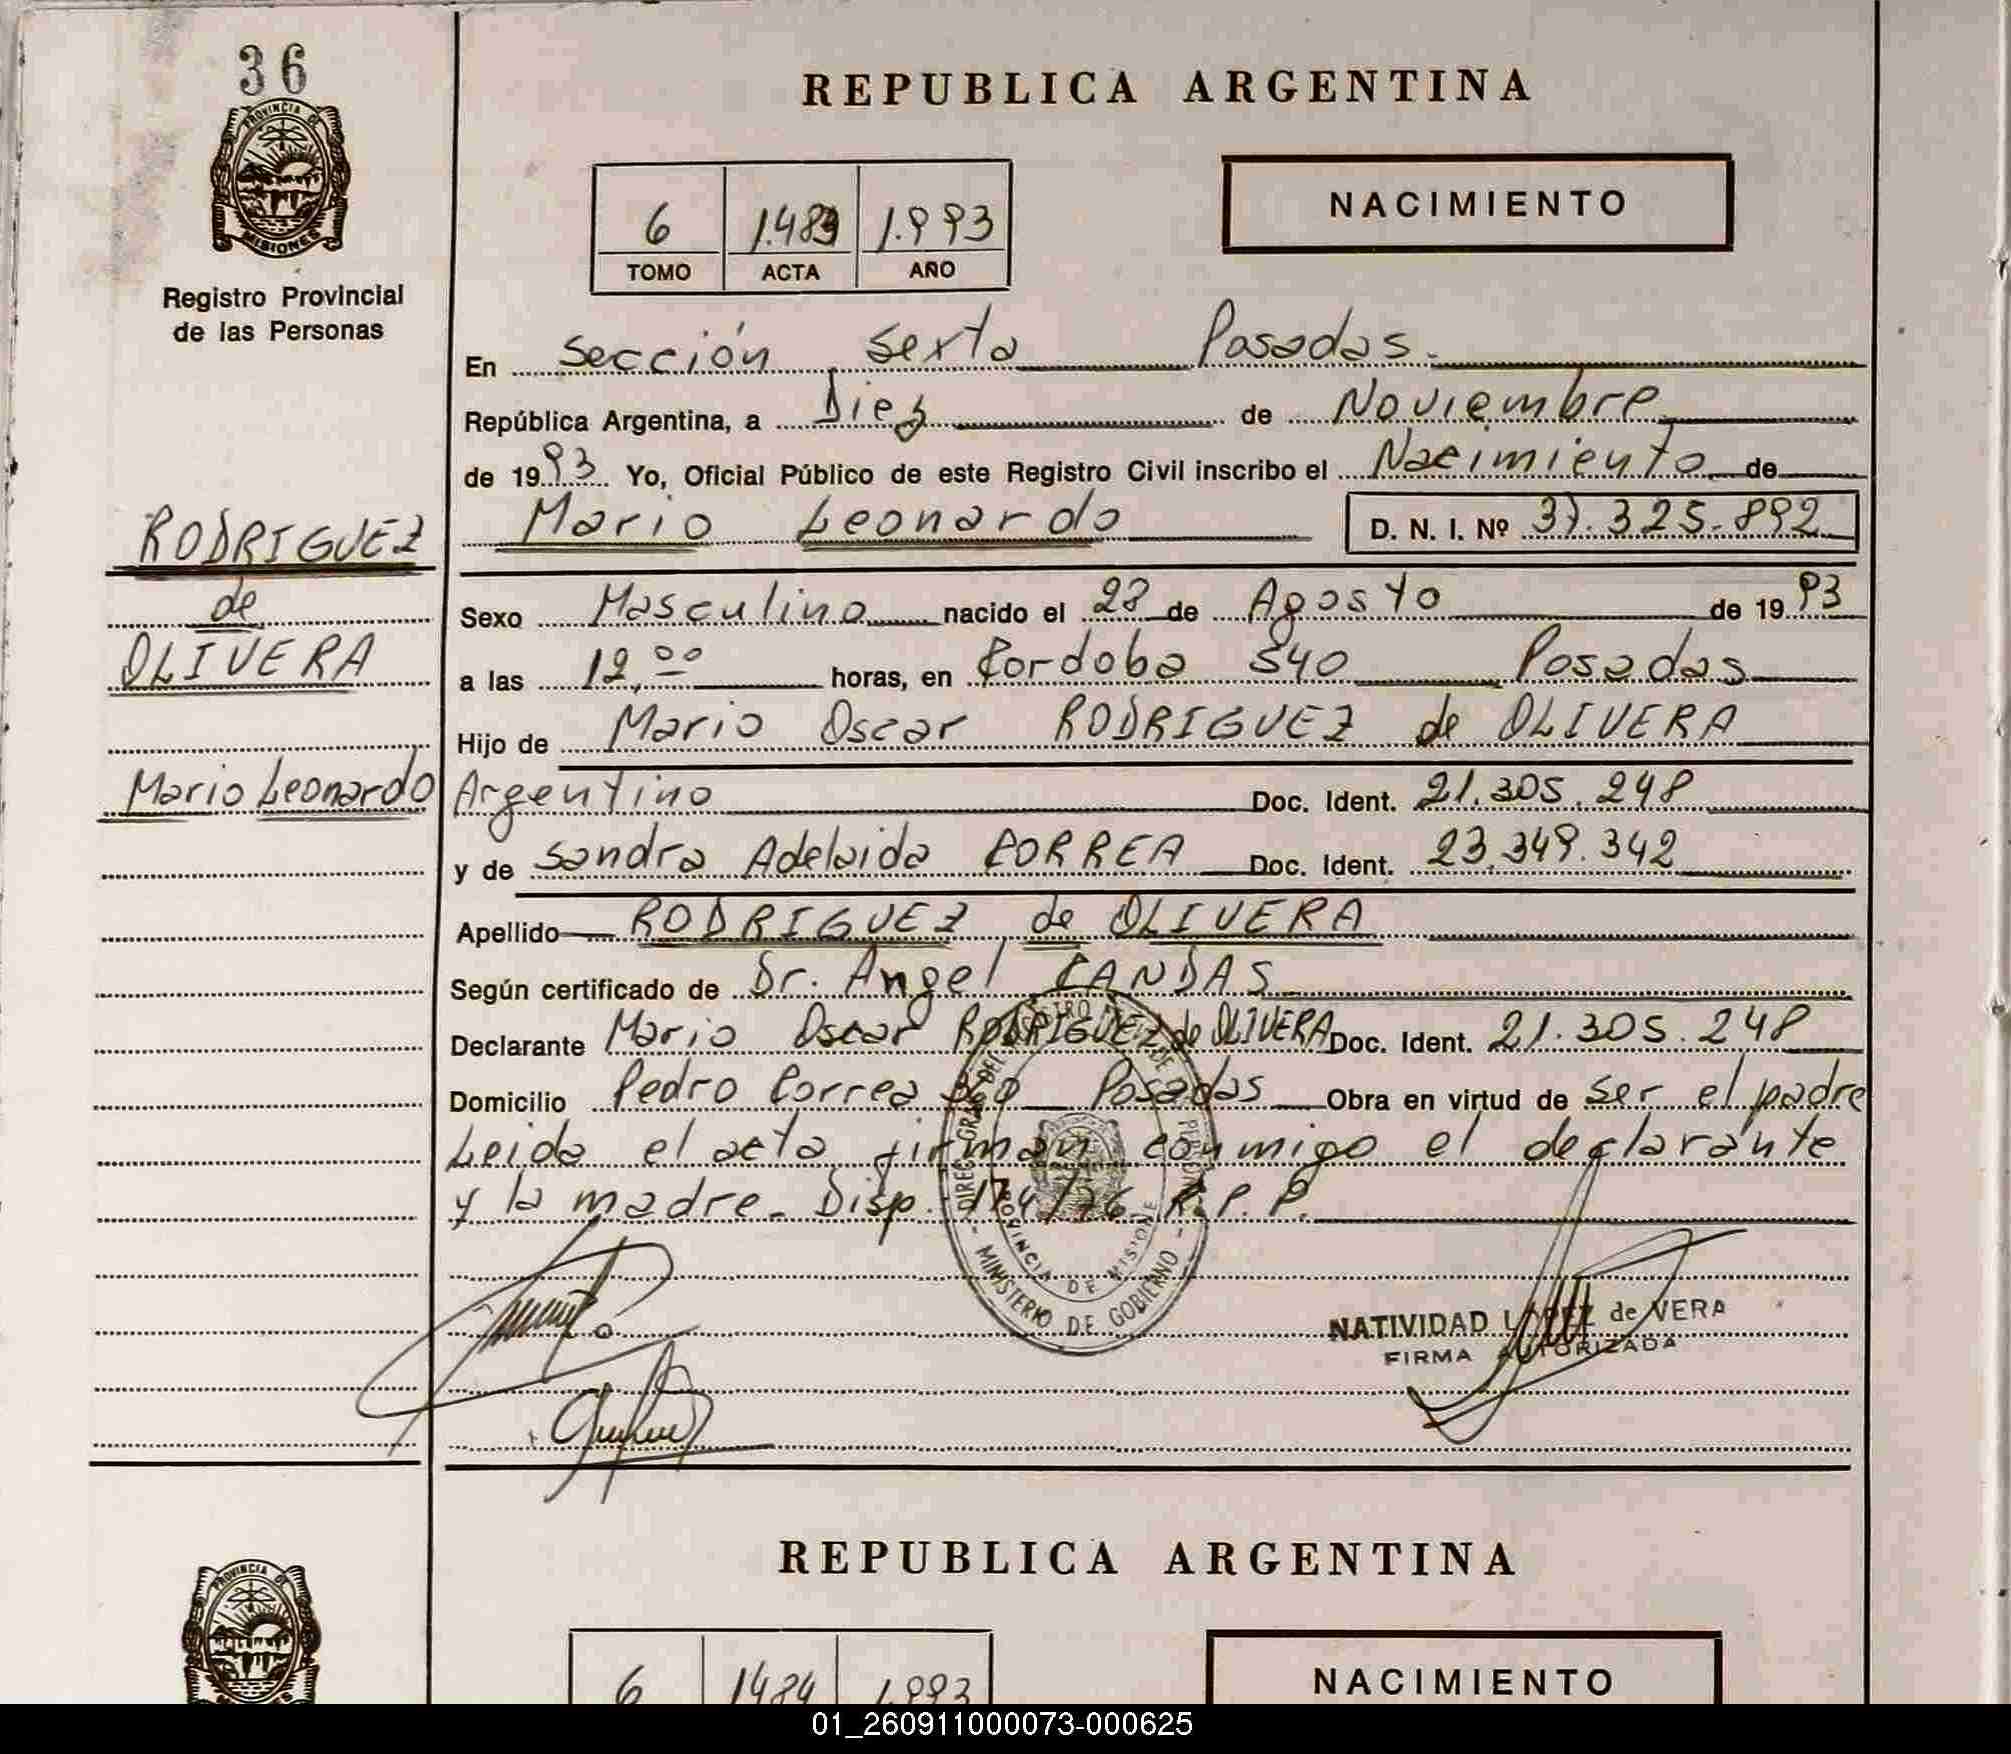 36
PROVINCIA DE
MISIONES
Registro Provincial
de las Personas
REPUBLICA ARGENTINA
6 1.483 1.993
TOMO ACTA AÑO
NACIMIENTO
En Sección Sexta Posadas.
República Argentina, a Diez de Noviembre
de 1993 Yo, Oficial Público de este Registro Civil inscribo el Nacimiento de
Mario Leonardo D. N. I. Nº 37.325.892
RODRIGUEZ
de
OLIVERA
Mario Leonardo
Sexo Masculino nacido el 28 de Agosto de 1993
a las 12,00 horas, en Cordoba 540 Posadas
Hijo de Mario Oscar RODRIGUEZ de OLIVERA
Argentino Doc. Ident. 21.305.248
y de Sandra Adelaida CORREA Doc. Ident. 23.349.342
Apellido RODRIGUEZ de OLIVERA
Según certificado de Dr. Angel CANDAS
Declarante Mario Oscar RODRIGUEZ de OLIVERA Doc. Ident. 21.305.248
Domicilio Pedro Correa Posadas Obra en virtud de ser el padre
Leida el acta firman conmigo el declarante
y la madre. Disp. 174/76 R.P.P.
PROVINCIA DE MISIONES
MINISTERIO DE GOBIERNO
NATIVIDAD LOPEZ de VERA
FIRMA AUTORIZADA
REPUBLICA ARGENTINA
PROVINCIA DE
6 1484 1.993
NACIMIENTO
01_260911000073-000625